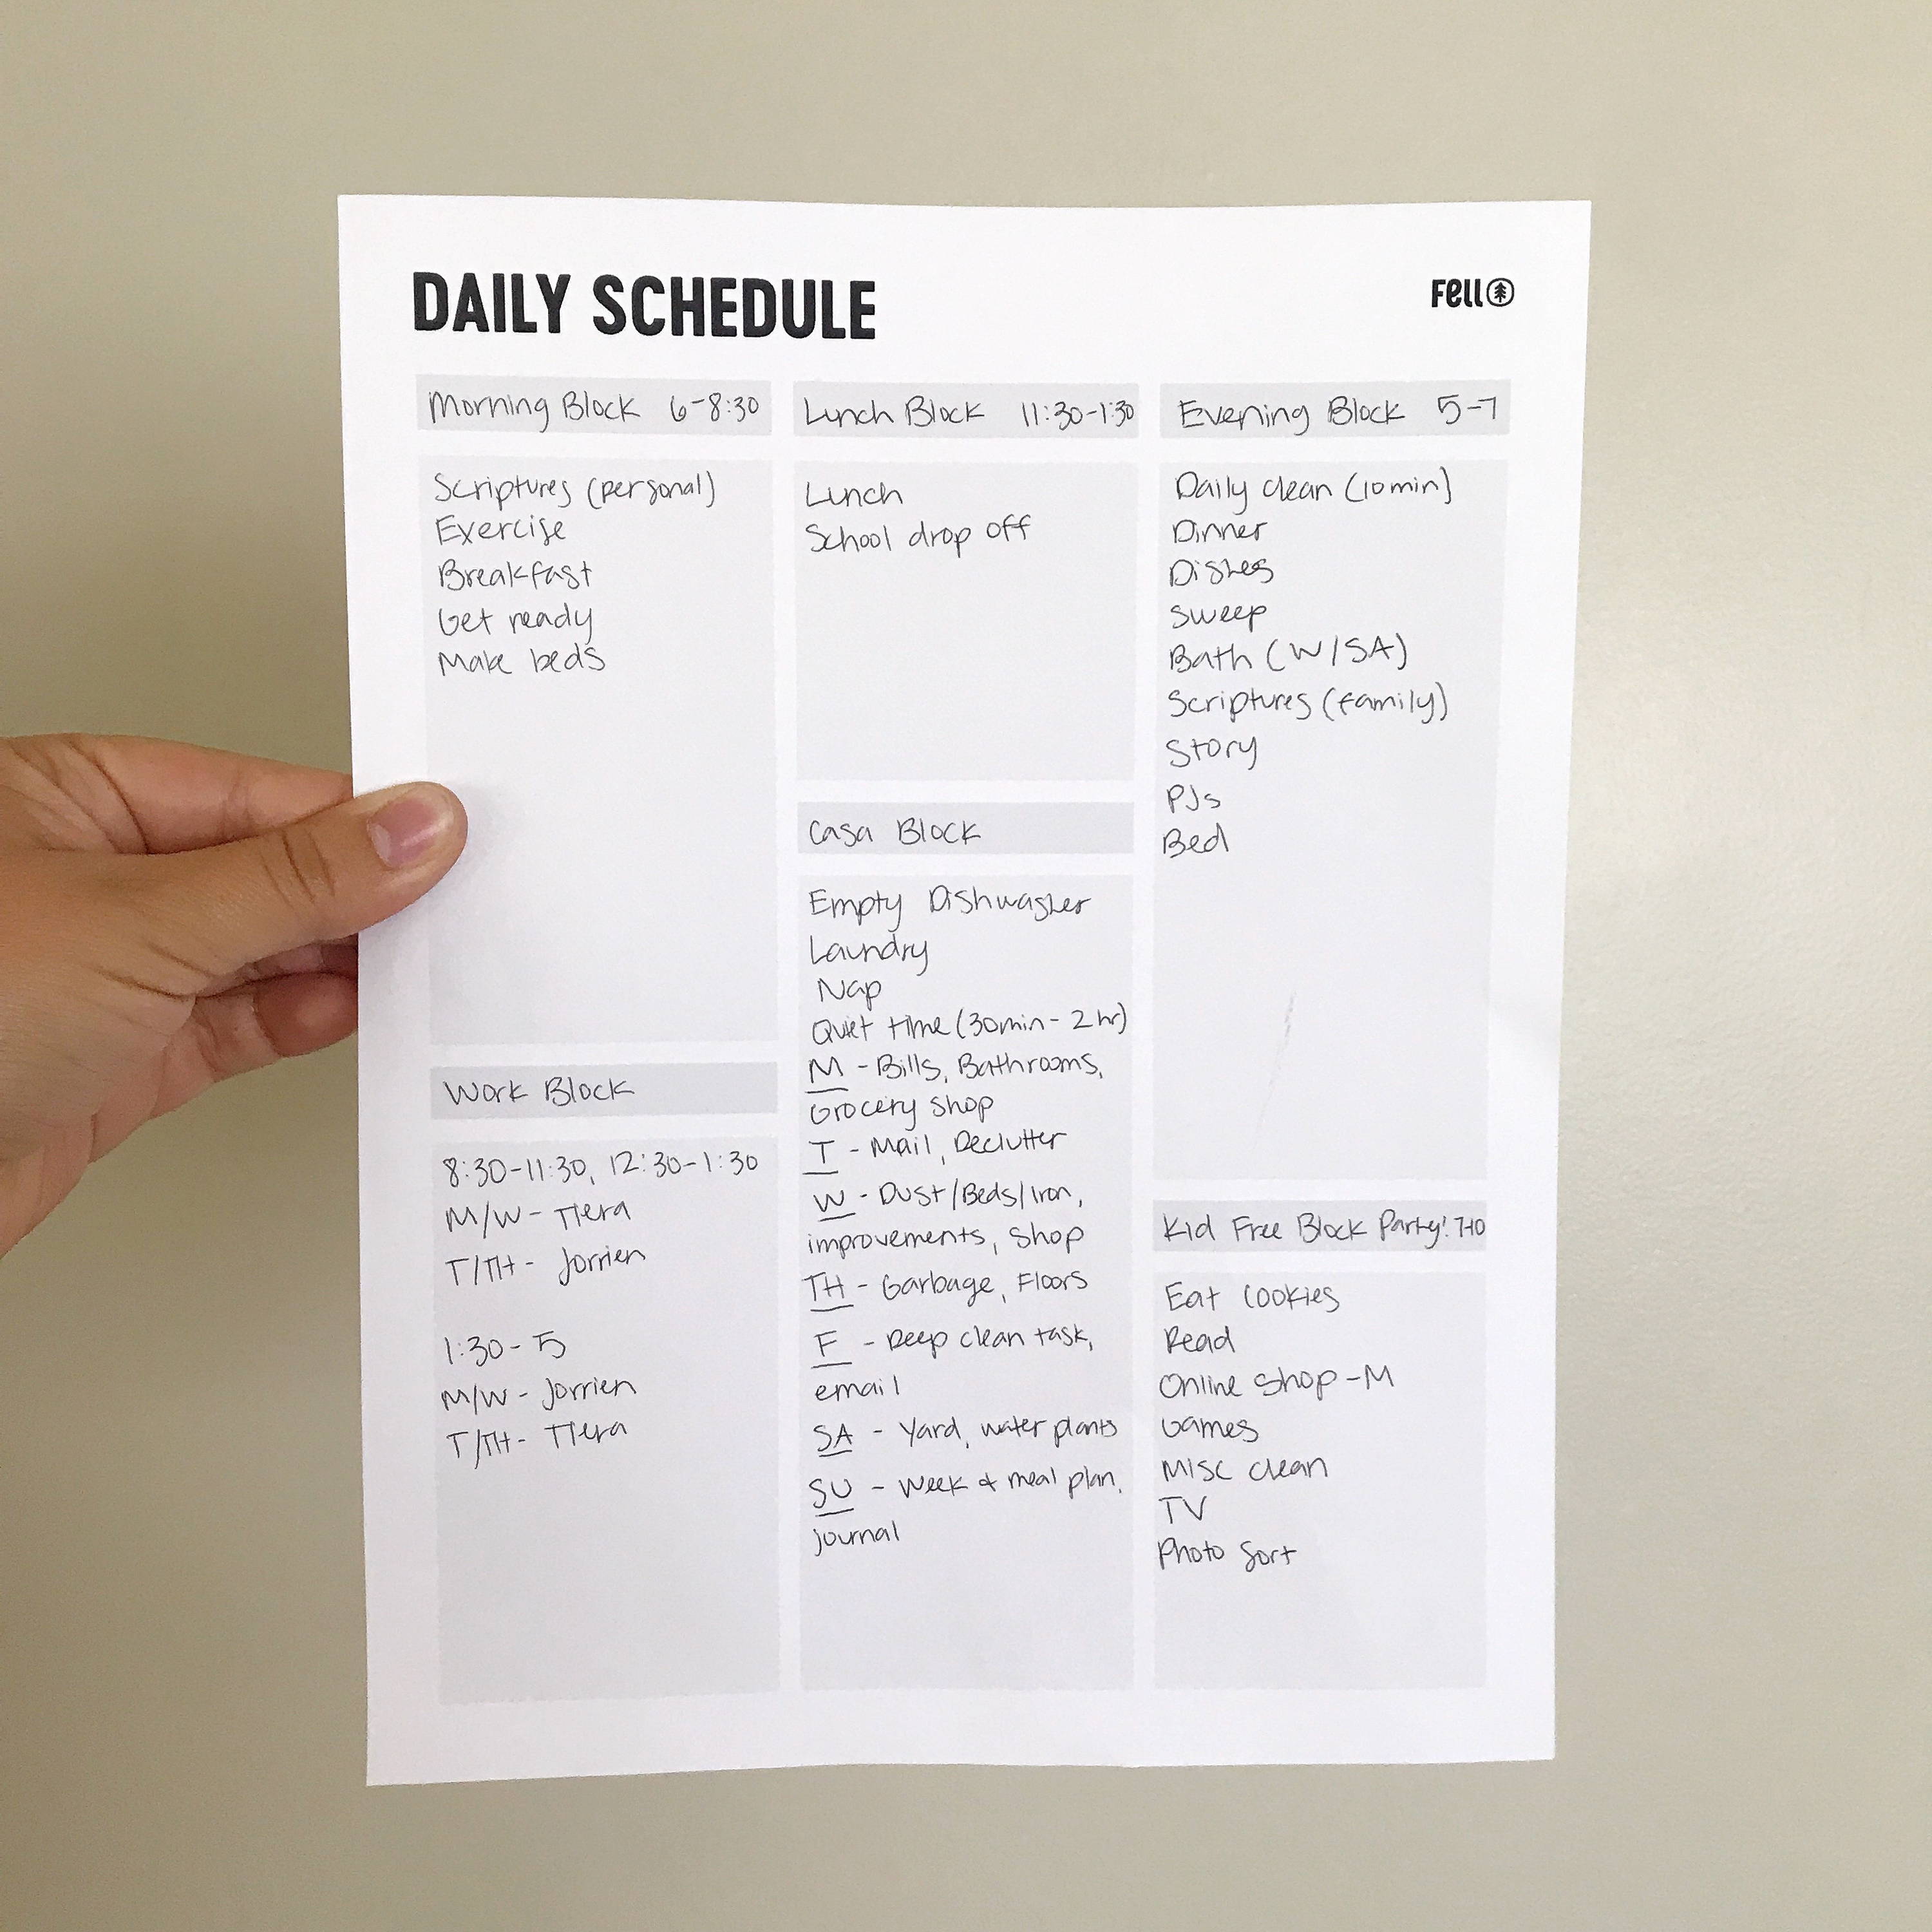 DAILY SCHEDULE
Fell
Morning Block 6-8:30
Scriptures (personal)
Exercise
Breakfast
Get ready
Make beds
Work Block
8:30-11:30, 12:30-1:30
M/W- Tiera
T/TH- Jorrien
1:30-5
M/W- Jorrien
T/TH- Tiera
Lunch Block 11:30-1:30
Lunch
School drop off
Casa Block
Empty Dishwasher
Laundry
Nap
Quiet time (30min- 2 hr)
M - Bills, Bathrooms,
Grocery shop
T - Mail, Declutter
W - Dust/Beds/Iron,
improvements, shop
TH - Garbage, Floors
F - Deep clean task,
email
SA - Yard, water plants
SU - Week & meal plan,
journal
Evening Block 5-7
Daily clean (10min)
Dinner
Dishes
Sweep
Bath (W/SA)
Scriptures (family)
Story
PJs
Bed
Kid Free Block Party! 7-10
Eat Cookies
Read
Online Shop-M
Games
Misc clean
TV
Photo Sort